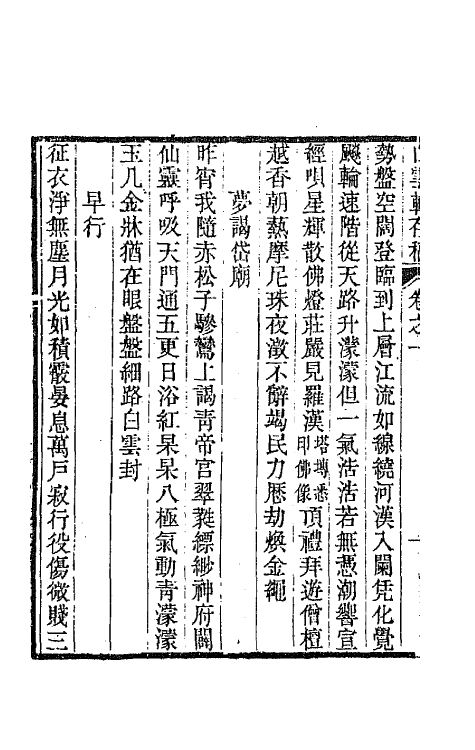 白雲軒存稿 卷之一
勢盤空闊登臨到上層江流如線繞河漢入闌凭化覺
颷輪速階從天路升濛濛但一氣浩浩若無憑潮響宣
經唄星輝散佛燈莊嚴見羅漢塔塼悉印佛像頂禮拜遊僧檀
越香朝爇摩尼珠夜澂不辭竭民力歷劫煥金繩
夢謁岱廟
昨宵我隨赤松子驂鸞上謁靑帝宫翠蕤縹緲神府闢
仙靈呼吸天門通五更日浴紅杲杲八極氣動靑濛濛
玉几金牀猶在眼盤盤細路白雲封
早行
征衣淨無塵月光如積霰晏息萬戸寂行役傷微賤三